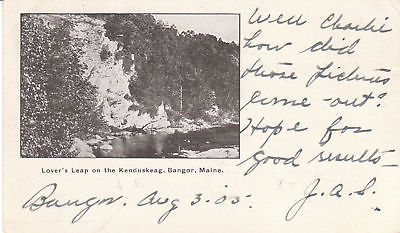 Well Charlie
how did
those pictures
come out?
Hope for
good results—
J.A.S.
Lover's Leap on the Kenduskeag, Bangor, Maine.
Bangor. Aug 3-05.